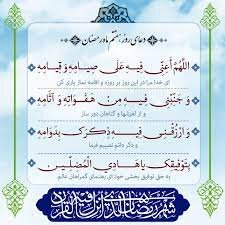 دعای روز هفتم ماه رمضان
اللَّهُمَّ أَعِنِّي فِيهِ عَلَى صِيَامِهِ وَقِيَامِهِ
ای خدا مرا در این روز بر روزه و اقامه نماز یاری کن
وَجَنِّبْنِي فِيهِ مِنْ هَفَوَاتِهِ وَآثَامِهِ
و از لغزشها و گناهان دور ساز
وَارْزُقْنِي فِيهِ ذِكْرَكَ بِدَوَامِهِ
و ذکر دائم نصیبم فرما
بِتَوْفِيقِكَ يَا هَادِيَ الْمُضِلِّينَ
به حق توفیق بخشی خود ای رهنمای گمراهان عالم.
شهر رمضان الذی انزل فیه القرآن